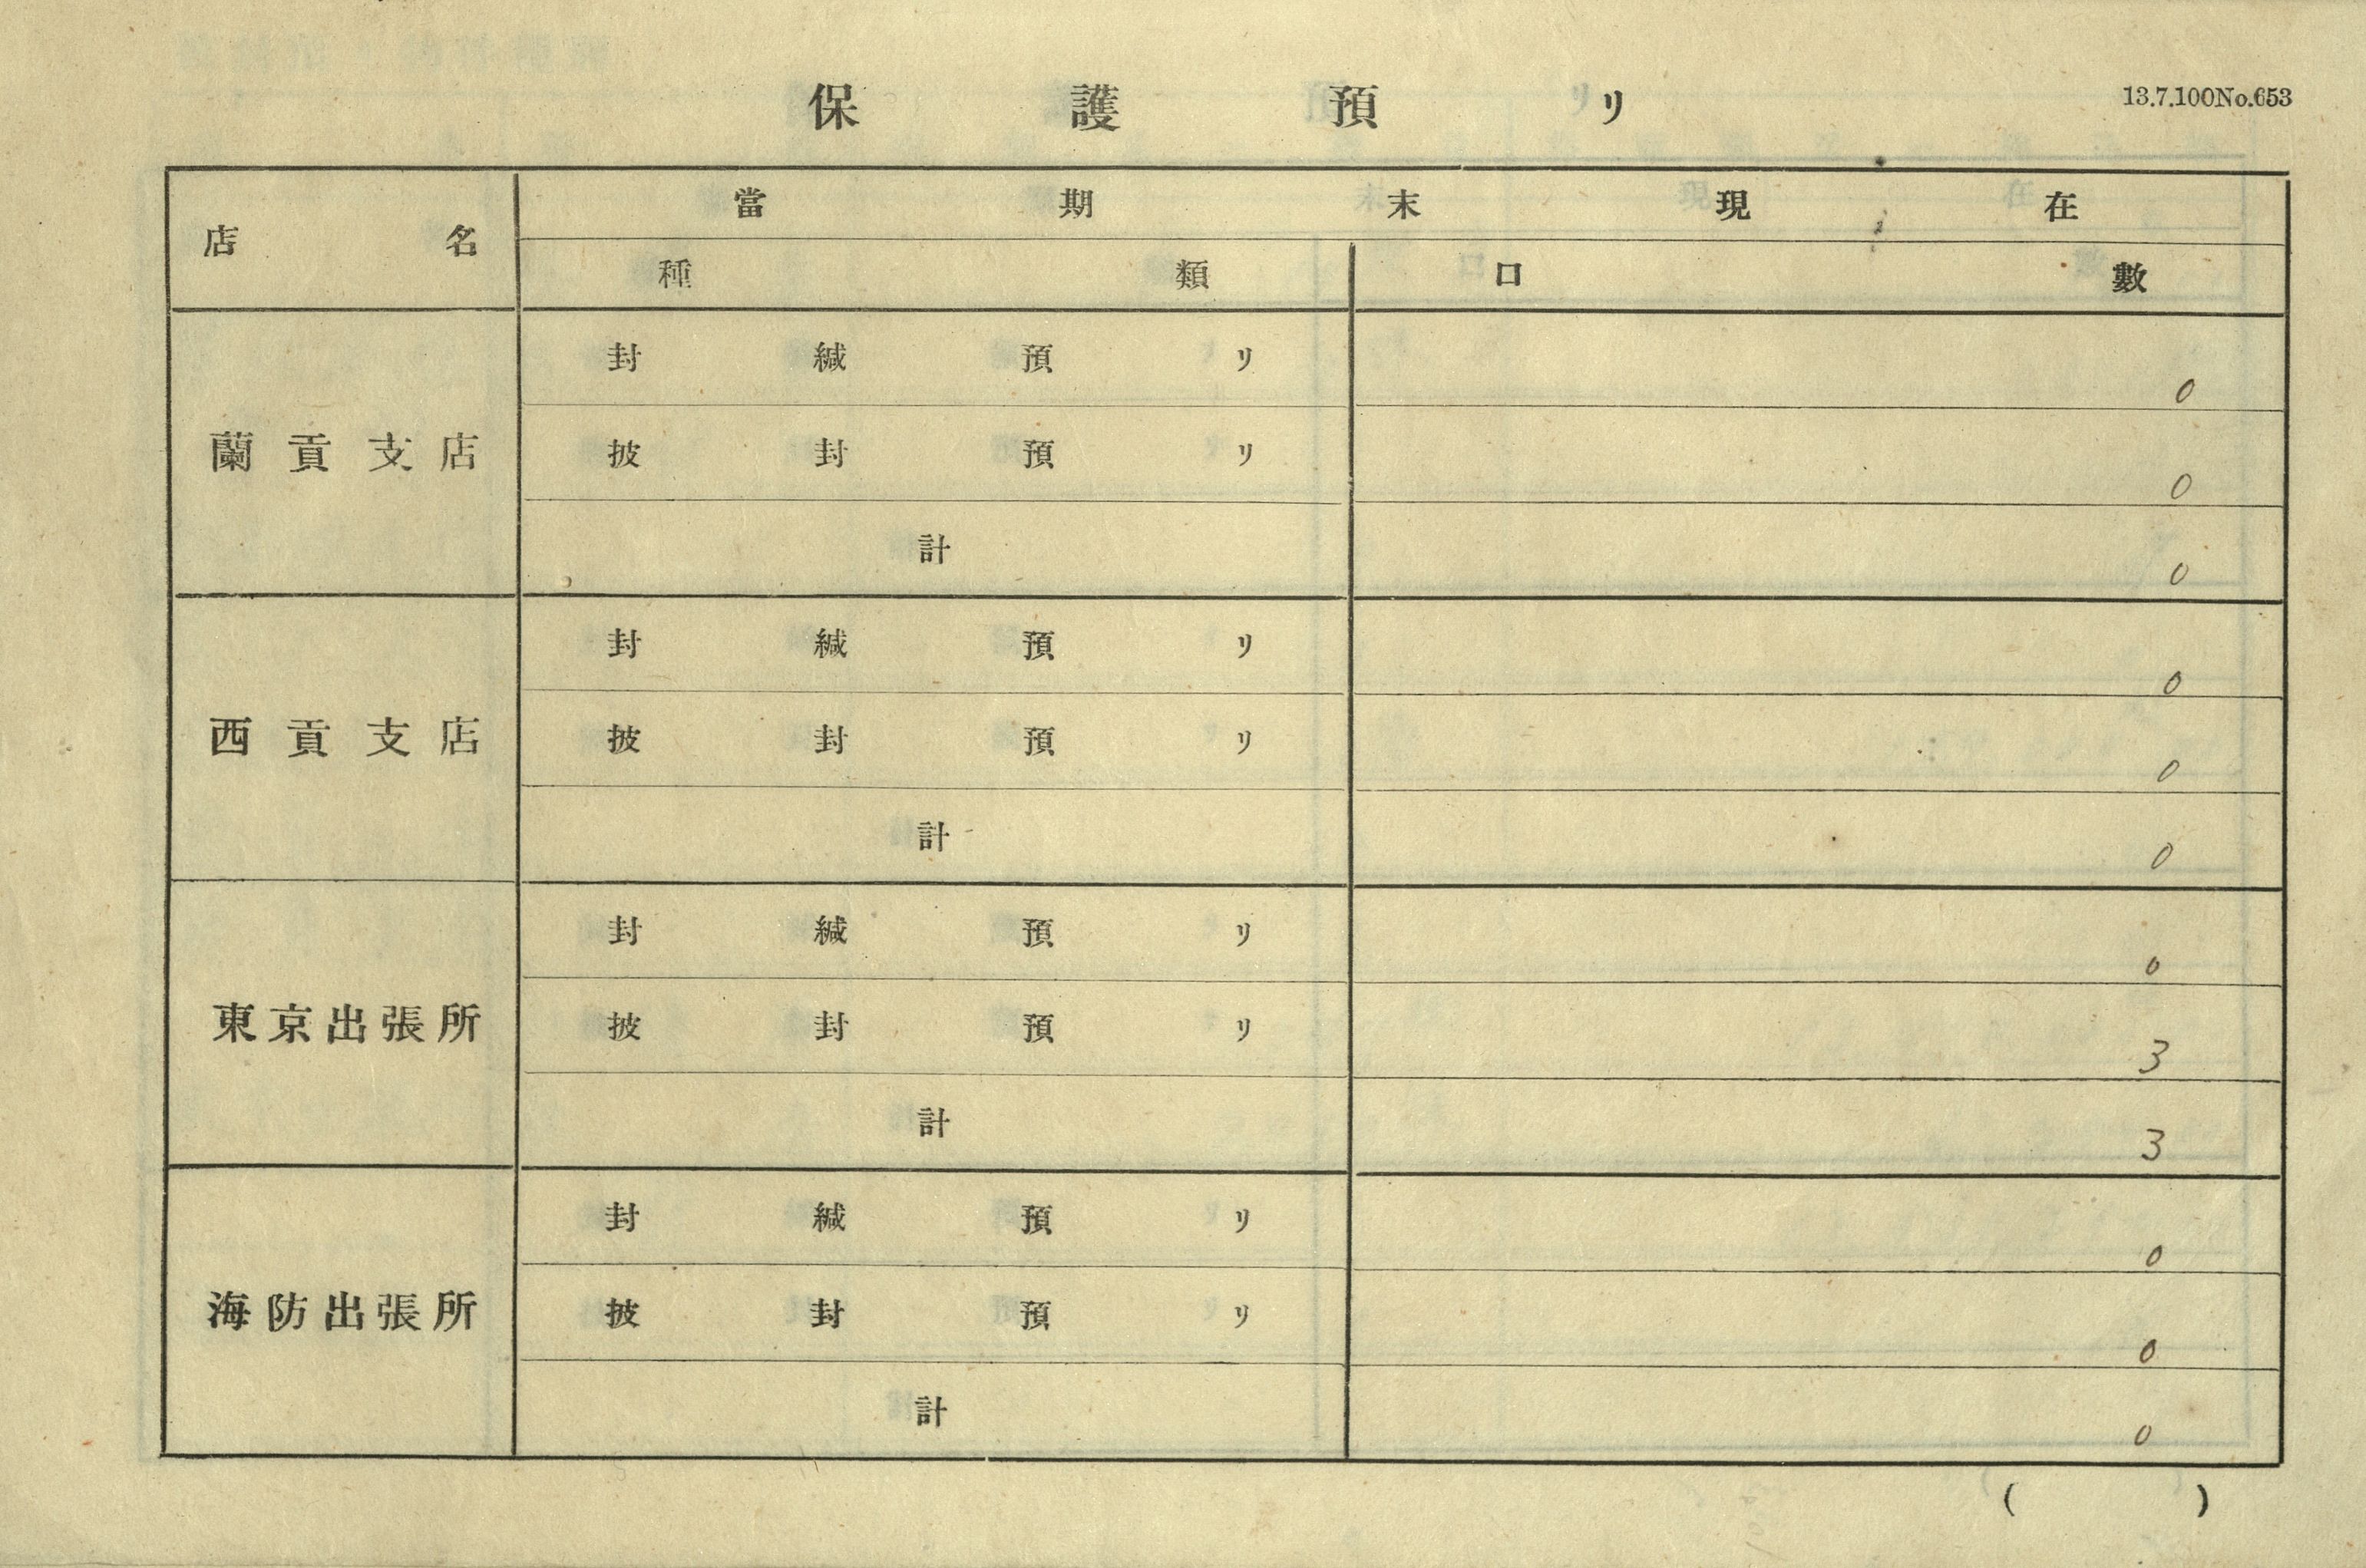 保護預リ
13.7.100No.653
店名 當期末現在
種類 口數
蘭貢支店 封緘預リ 0
披封預リ 0
計 0
西貢支店 封緘預リ 0
披封預リ 0
計 0
東京出張所 封緘預リ 0
披封預リ 3
計 3
海防出張所 封緘預リ 0
披封預リ 0
計 0
( )